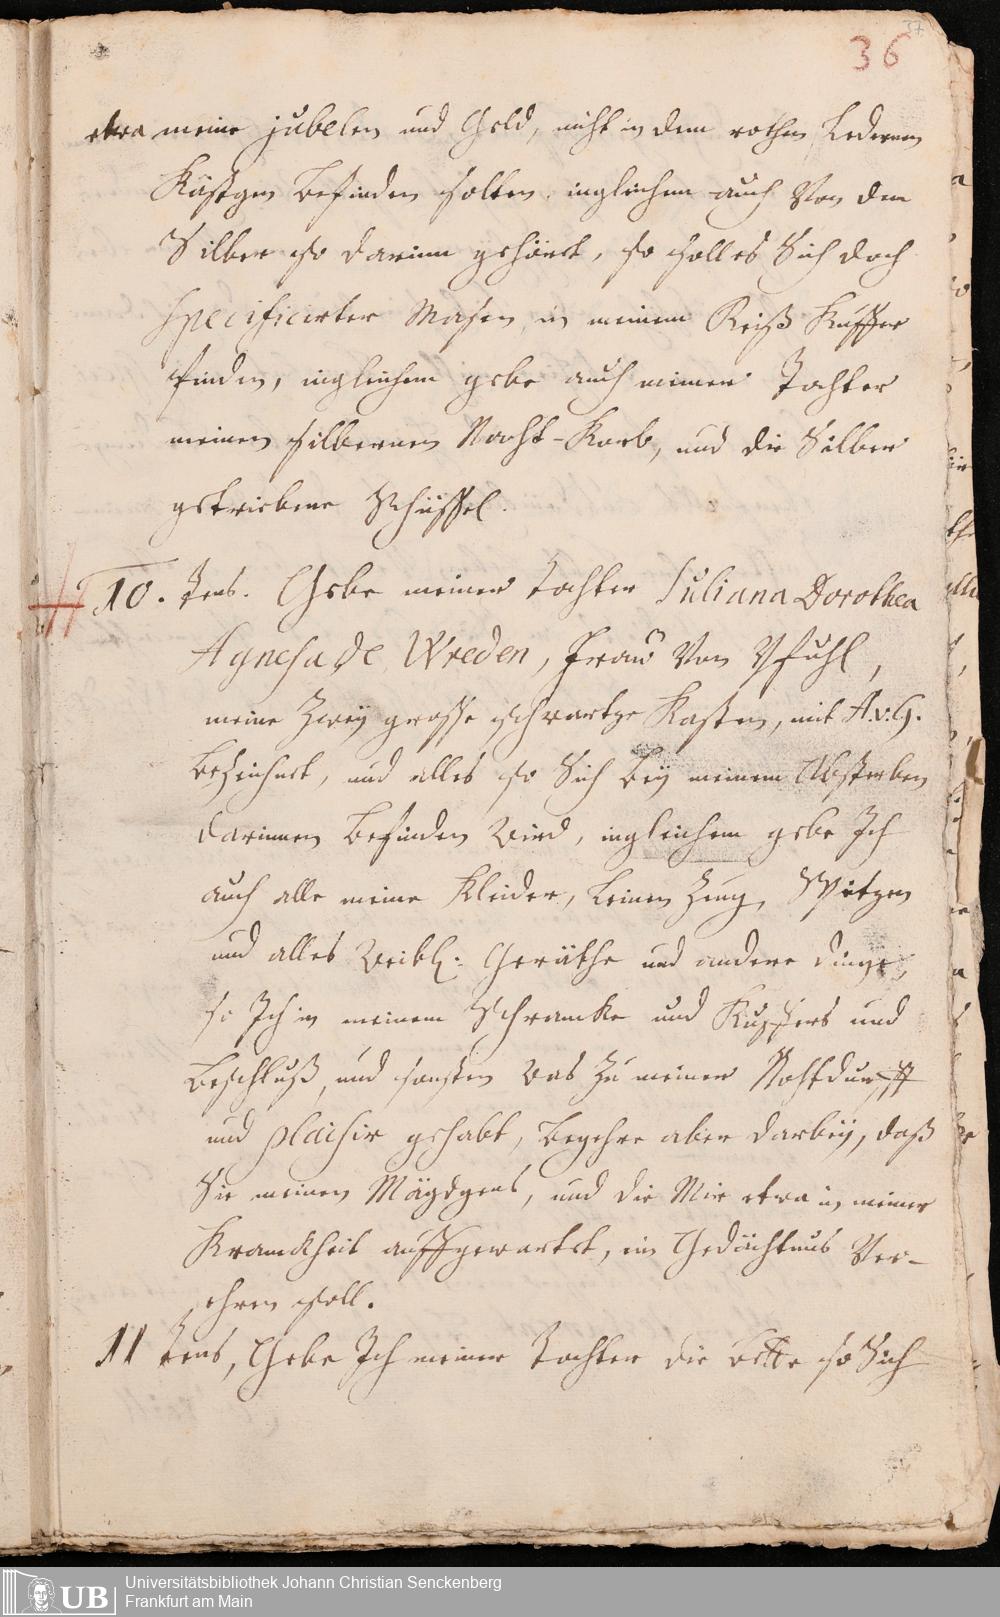 37
36
etwa meine jubelen und Geld, nicht in dem rothen Ledernen
Kästgen befinden solten, ingleichen auch Von dem
Silber so darinn gehöret, so soll es Sich doch
specificirter Masen, in meinem Reiß Kuffer
finden, ingleichem gebe auch meiner Tochter
meinen silbernen Nacht-Korb, und die Silber
getriebene Schüssel.
10. tens. Gebe meiner tochter Juliana Dorothea
Agnesa de Wreden, Frau Von Pfuhl,
meine Zwey grosse schwartze Kasten, mit A.v.G.
bezeichnet, und alles so Sich bey meinem Absterben
darinnen befinden wird, ingleichem gebe Ich
auch alle meine Kleider, Leinen Zeug, Spitzen
und alles Weibl: Geräthe und andere dinge,
so Ich in meinem Schrancke und Kuffers und
Beschluß, und sonsten was Zu meiner Nohtdurfft
und plaisir gehabt, Begehre aber darbey, daß
Sie meinen Mägdgens, und die Mir etwa in meiner
Kranckheit auffgewartet, ein Gedächtnus Ver-
ehren soll.
11 tens, Gebe Ich meiner Tochter die bette so Sich
UB
Universitätsbibliothek Johann Christian Senckenberg
Frankfurt am Main